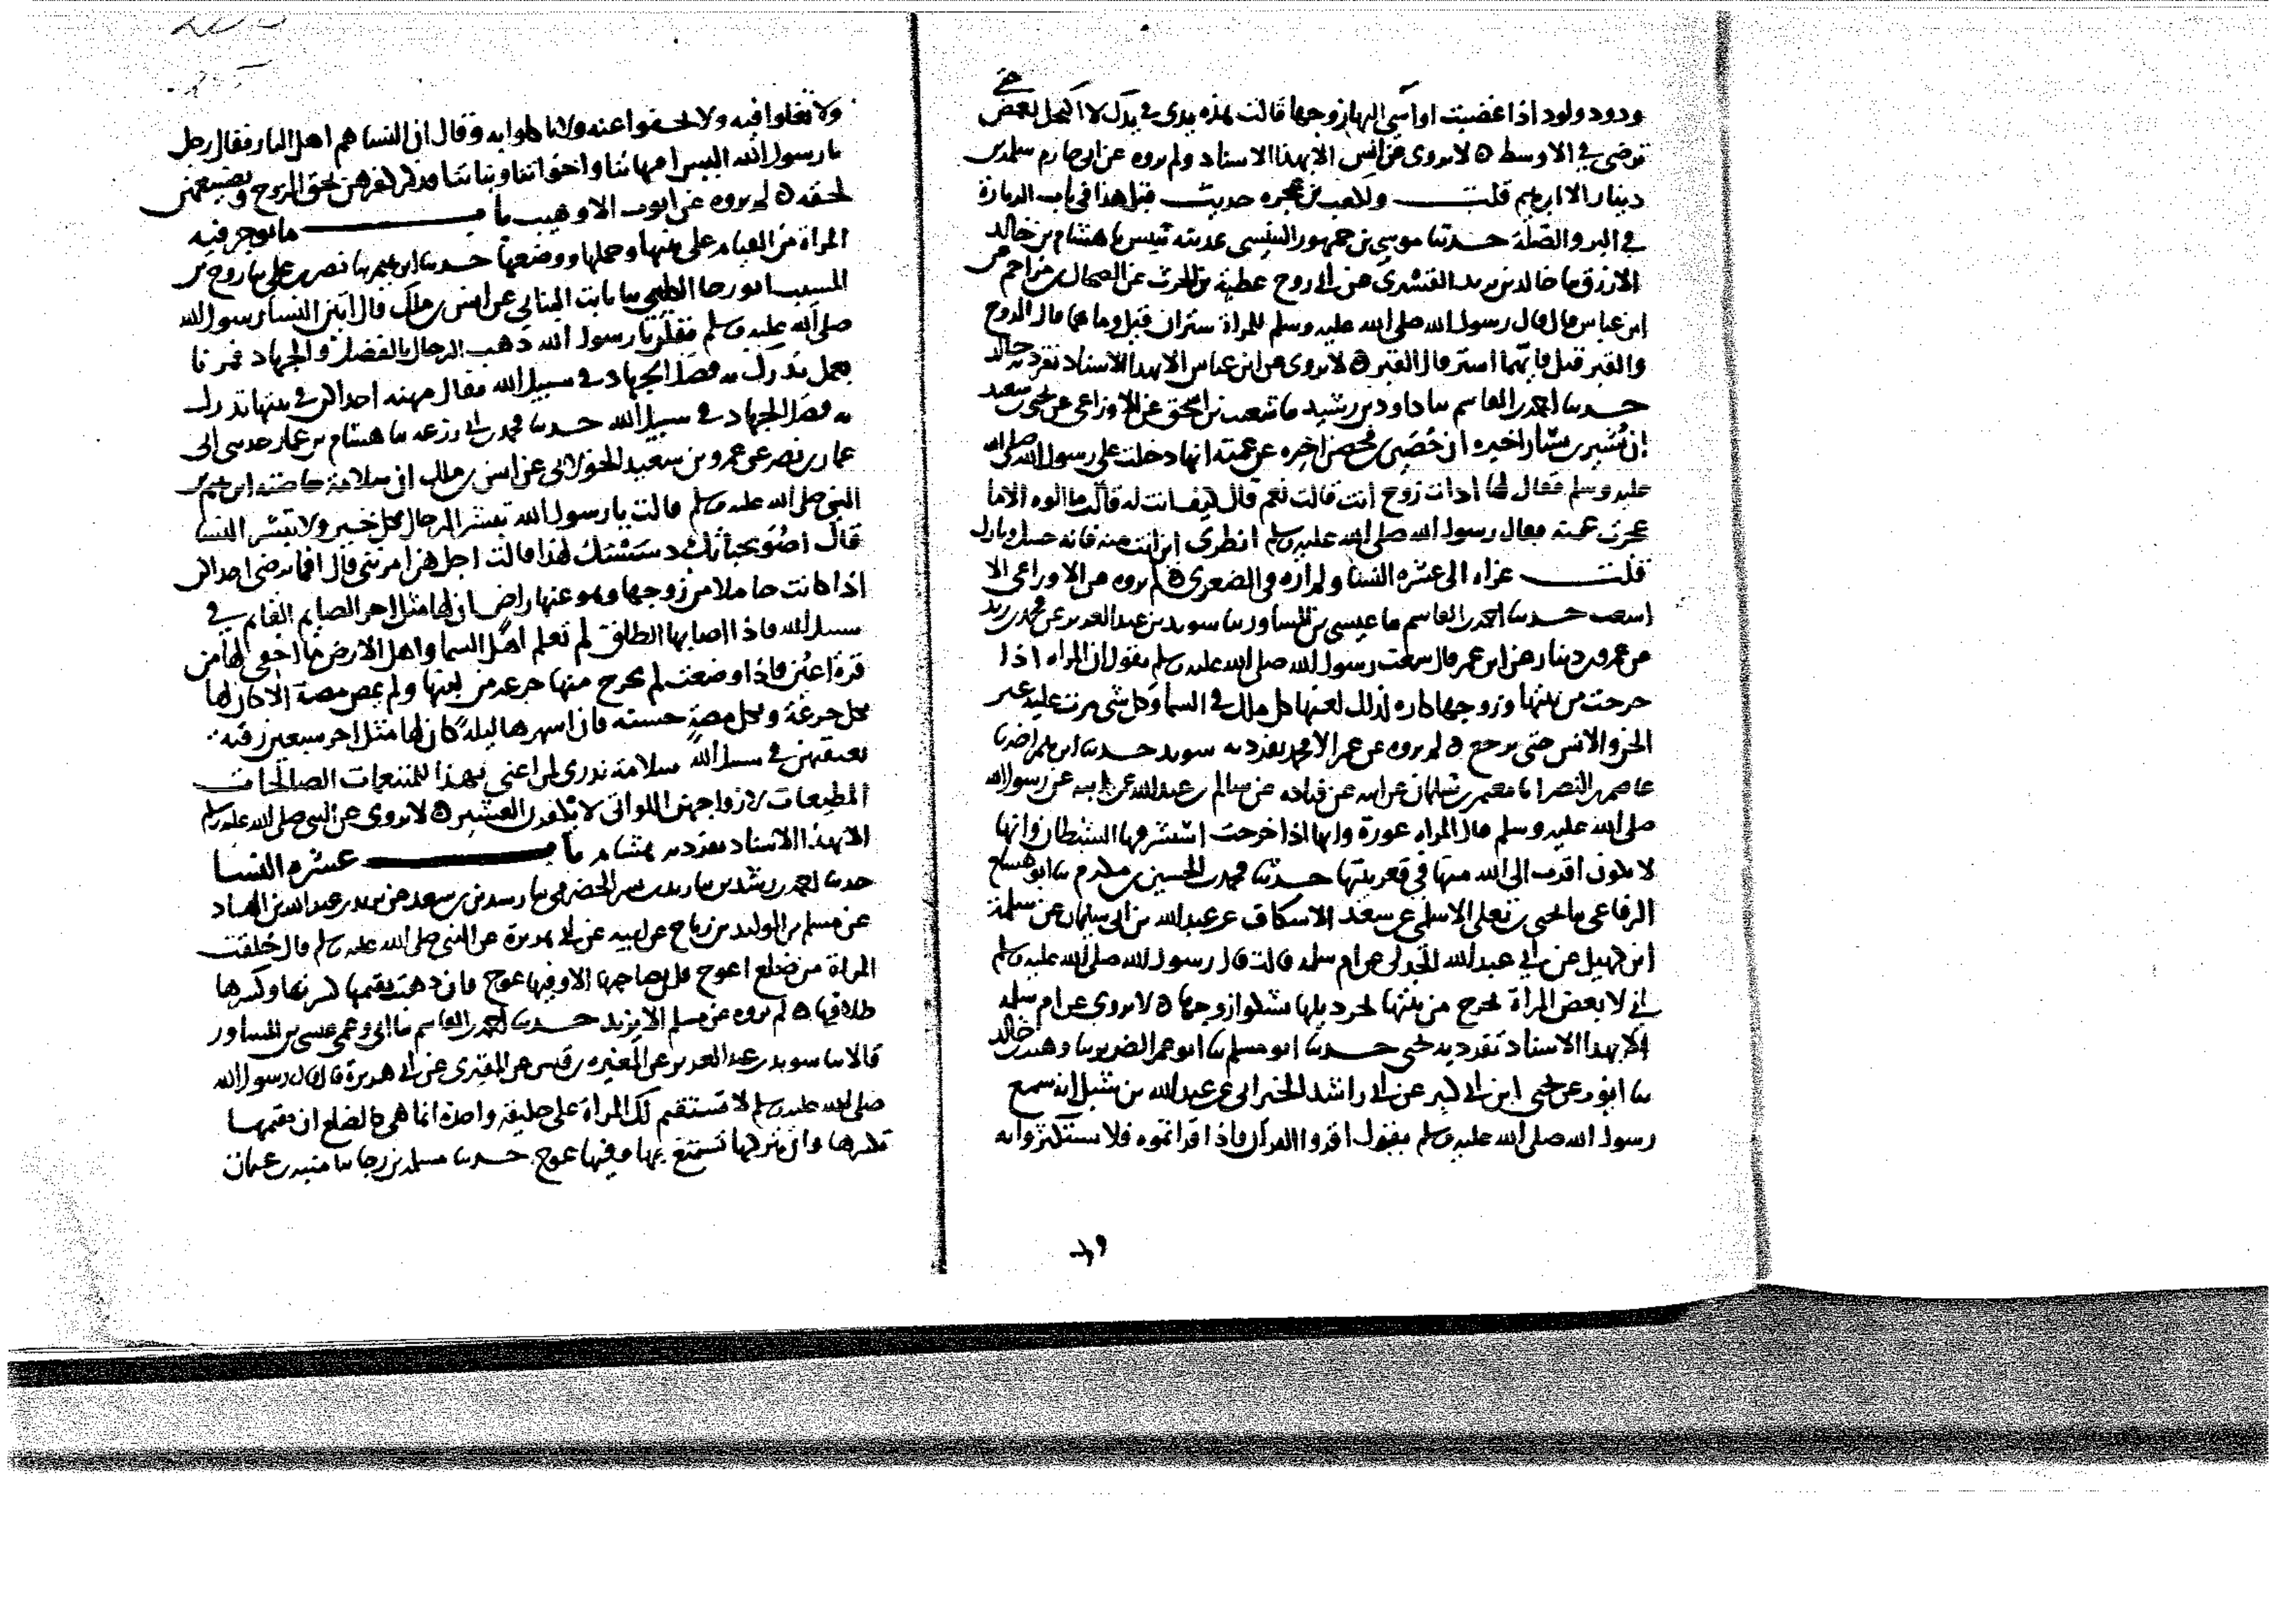 ودود ولود اذا غضبت او اسي اليها زوجها قالت هذه يدي في يدك لا اكتحل بغمض حتى
ترضى في الاوسط ه لا يروى عن انس الا بهذا الاسناد ولم يروه عن ابي حازم سلمة بن
دينار الا ابرهيم قلت ولكعب بن عجره حديث قبل هذا في باب الزيارة
في البر والصلة حدثنا موسى بن جمهور التنيسي بمدينة تنيس نا هشام بن خالد
الازرق نا خالد بن يزيد القشري عن ابي روح عطية بن الحرث عن الضحاك بن مزاحم عن
ابن عباس قال قال رسول الله صلى الله عليه وسلم للمراة ستران قيل وما هما قال الزوج
والقبر قيل فايهما استر قال القبر ه لا يروى عن ابن عباس الا بهذا الاسناد تفرد به خالد
حدثنا احمد بن القاسم نا داود بن رشيد نا شعيب بن اسحق عن الاوزاعي عن يحيى بن سعيد
ان بشير بن يسار اخبره ان حصين بن محصن اخبره عن عمته انها دخلت على رسول الله صلى الله
عليه وسلم فقال لها اذات زوج انت قالت نعم قال كيف انت له قالت ما الوه الا ما
عجزت عنه فقال رسول الله صلى الله عليه وسلم انظري اين انت منه فانه جنتك ونارك
قلت عزاه الى عشرة النسا ولم اره في الصغرى ه لم يروه عن الاوزاعي الا
شعيب حدثنا احمد بن القاسم نا عيسى بن المساور نا سويد بن عبد العزيز عن محمد بن زيد
عن عمرو بن دينار عن ابن عمر قال سمعت رسول الله صلى الله عليه وسلم يقول ان المراة اذا
خرجت من بيتها وزوجها كاره لذلك لعنها كل ملك في السما وكل شي مرت عليه غير
الجن والانس حتى ترجع ه لم يروه عن عمرو الا محمد تفرد به سويد حدثنا ابرهيم
عاصم بن النضر نا معتمر بن سليمان عن ابيه عن قتاده عن سالم بن عبد الله عن ابيه عن رسول الله
صلى الله عليه وسلم قال المراة عورة وانها اذا خرجت استشرفها الشيطان وانها
لا تكون اقرب الى الله منها في قعر بيتها حدثنا محمد بن الحسين بن مكرم نا ابو هشام
الرفاعي نا يحيى بن يعلى الاسلمي عن سعد الاسكاف عن عبد الله بن ابي سليمان عن سلمة
ابن كهيل عن ابي عبد الله الجدلي عن ام سلمة قالت قال رسول الله صلى الله عليه وسلم
اني لابغض المراة تخرج من بيتها تجر ذيلها تشكوا زوجها ه لا يروى عن ام سلمة
الا بهذا الاسناد تفرد به يحيى حدثنا ابو مسلم نا ابو عمر الضرير نا وهيب بن خالد
نا ايوب عن يحيى ابن ابي كثير عن ابي راشد الحبراني عن عبد الله بن شبل انه سمع
رسول الله صلى الله عليه وسلم يقول اقروا القران فاذا قراتموه فلا تستكثروا به
ولا تغلوا فيه ولا تجفوا عنه ولا تاكلوا به وقال ان النسا هم اهل النار فقال رجل
يا رسول الله اليس امهاتنا واخواتنا وبناتنا فذكر كفرهن لحق الزوج وتضييعهن
لحقه ه لم يروه عن ايوب الا وهيب باب ما يوجر فيه
المراة من القيام على بيتها وحملها ووضعها حدثنا ابرهيم نا نصر بن علي نا روح بن
المسيب ابو رجا الكلبي نا ثابت البناني عن انس بن ملك قال اتين النسا رسول الله
صلى الله عليه وسلم فقلن يا رسول الله ذهب الرجال بالفضل والجهاد فمرنا
بعمل ندرك به فضل الجهاد في سبيل الله فقال مهنة احداكن في بيتها تدرك
به فضل الجهاد في سبيل الله حدثنا محمد بن ابي زرعة نا هشام بن عمار حدثني ابي
عمار بن نصر عن عمرو بن سعيد الخولاني عن انس بن ملك ان سلامة حاضنة ابرهيم بن
النبي صلى الله عليه وسلم قالت يا رسول الله تبشر الرجال بكل خير ولا تبشر النسا
قال اصويحباتك دسستك لهذا قالت اجل هن امرنني قال افما ترضى احداكن
اذا كانت حاملا من زوجها وهو عنها راض ان لها مثل اجر الصايم القايم في
سبيل الله فاذا اصابها الطلق لم تعلم اهل السما واهل الارض ما اخفي لها من
قرة اعين فاذا وضعت لم يخرج منها جرعة من لبنها ولم يمص مصة الا كان لها
بكل جرعة وبكل مصة حسنة فان اسهرها ليلة كان لها مثل اجر سبعين رقبة
تعتقهن في سبيل الله سلامة تدري لمن اعني بهذا للمتنعات الصالحات
المطيعات لازواجهن اللواتي لا يكفرن العشير ه لا يروى عن النبي صلى الله عليه وسلم
الا بهذا الاسناد تفرد به هشام باب عشرة النسا
حدثنا احمد بن رشدين نا زيد بن بشر الحضرمي نا رشدين بن سعد عن يزيد بن عبد الله بن الهاد
عن مسلم بن الوليد بن رباح عن ابيه عن ابي هريرة عن النبي صلى الله عليه وسلم قال خلقت
المراة من ضلع اعوج فلن تصاحبها الا وفيها عوج فان ذهبت تقيمها كسرتها وكسرها
طلاقها ه لم يروه عن مسلم الا يزيد حدثنا احمد بن القاسم نا ابي وعمي عيسى بن المساور
قالا نا سويد بن عبد العزيز عن المغيرة بن قيس عن المقبري عن ابي هريرة قال قال رسول الله
صلى الله عليه وسلم لا تستقيم لك المراة على خليقة واحدة انما هي كالضلع ان تقمها
تكسرها وان تتركها تستمتع بها وفيها عوج حدثنا مسلمة بن رجا نا منبه بن عثمان